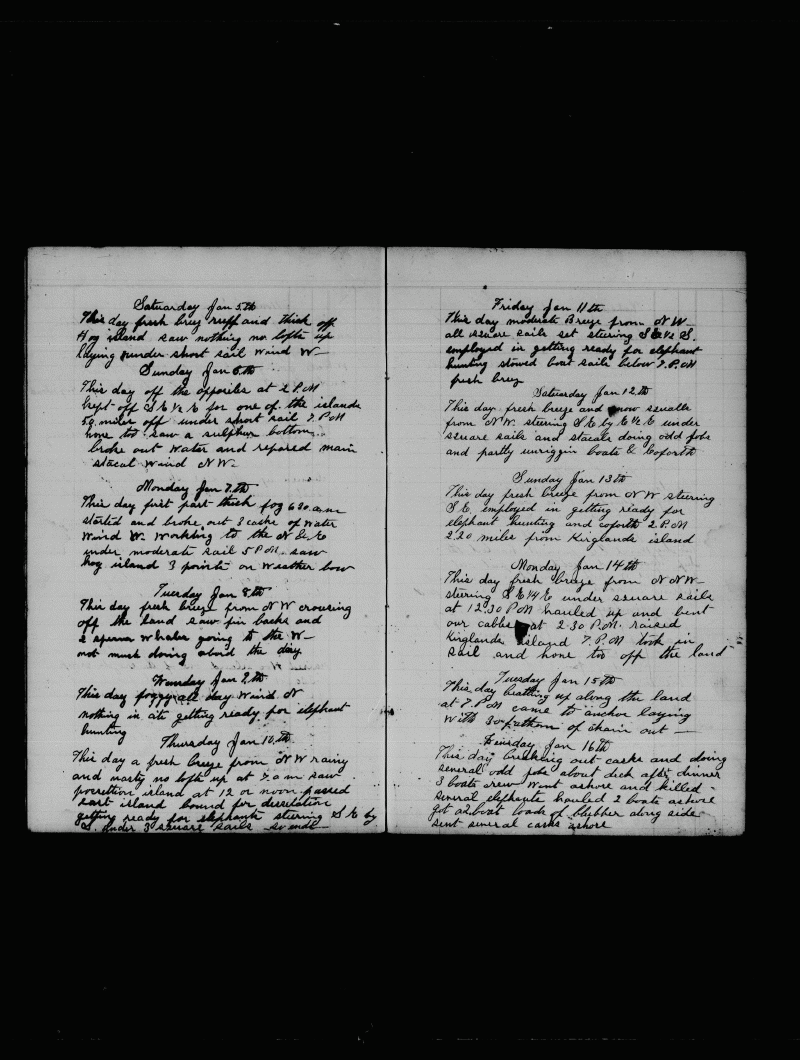 Saturday Jan 5th
This day fresh brez ruff and thick off
Hog island saw nothing no lofts up
laying under short sail Wind W
Sunday Jan 6th
This day off the apposiles at 2 P.M
kept off S E ½ E for one of the islands
50 miles off under short sail 7 P.M
hove too saw a sulphur bottom
broke out water and repared main
stacal Wind N W
Monday Jan 7th
This day first part thick fog 6 30 a.m
started and broke out 3 casks of water
Wind W. Working to the N & E
under moderate sail 5 P.M. saw
hog island 3 points on weather bow
Tuesday Jan 8th
This day fresh breze from N W crousing
off the land saw fin backs and
2 sperm whales going to the W
not much doing abord the day
Wensday Jan 9th
This day foggy all day Wind N
nothing in cite getting ready for elephant
hunting
Thursday Jan 10th
This day a fresh breze from N W rainy
and nasty no lofts up at 7 a m saw
possetion island at 12 or noon passed
east island bound for desselation
getting ready for elephants steering S E by
S. under 3 square sails
Friday Jan 11th
This day moderate Breze from N W
all square sails set steering S E ½ S.
employed in getting ready for elephant
hunting stowed boat sails below 7 P.M
fresh brez
Saturday Jan 12th
This day fresh breeze and snow squalls
from N W. steering S E by E ½ E under
square sails and stacals doing odd jobs
and partly unriggin boats & Coforth
Sunday Jan 13th
This day fresh breeze from N W steering
S E. employed in getting ready for
elephant hunting and coforth 2 P.M
220 miles from Kirglands island
Monday Jan 14th
This day fresh breze from N N W
steering S E ¼ E under square sails
at 12 30 P M hauled up and bent
our cables at 2 30 P.M. raised
Kinglands island 7. P.M took in
sail and hove too off the land
Tuesday Jan 15th
This day beatting up along the land
at 7. P M came to anchor laying
With 30 fathom of chain out
Wensday Jan 16th
This day breaking out casks and doing
several odd jobs about deck after dinner
3 boats crew went ashore and killed
several elephants hauled 2 boats ashore
got a boat loads of blubber along side
sent several casks ashore